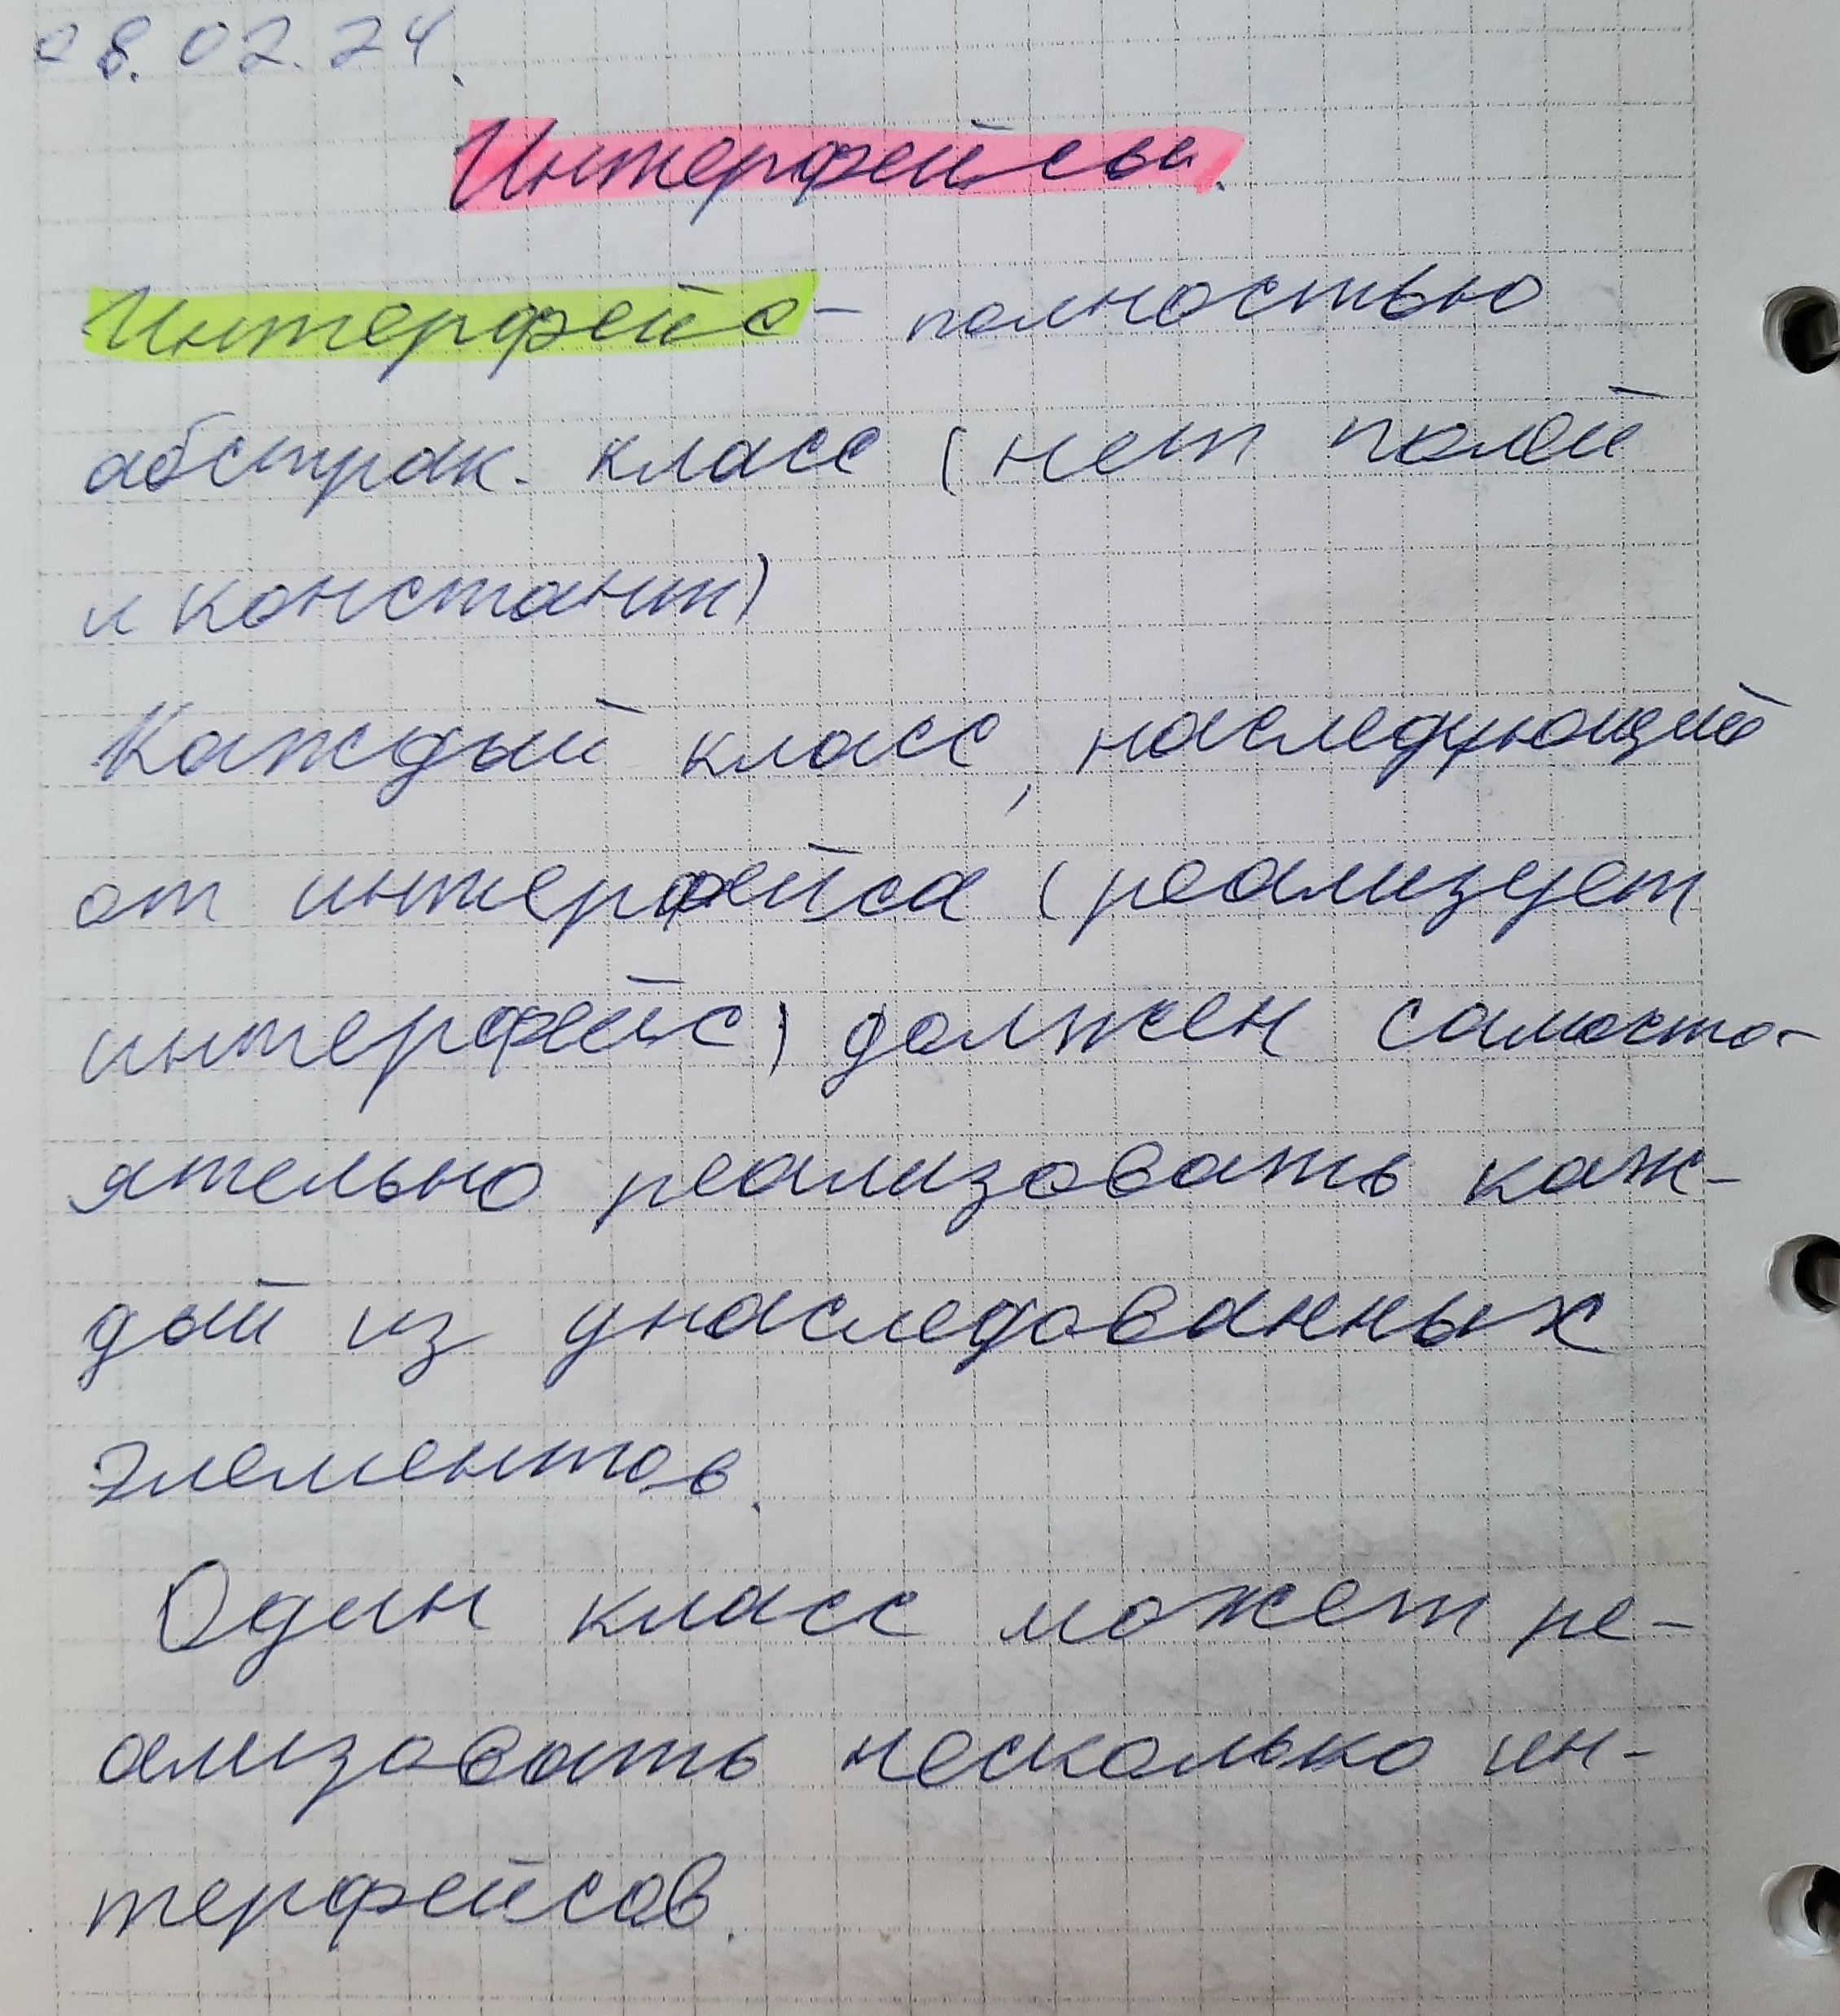 08.02.24.
Интерфейсы.
Интерфейс - полностью
абстрак. класс (нет полей
и констант)
Каждый класс, наследующий
от интерфейса (реализует
интерфейс) должен самосто-
ятельно реализовать каж-
дый из унаследованных
элементов.
Один класс может ре-
ализовать несколько ин-
терфейсов.